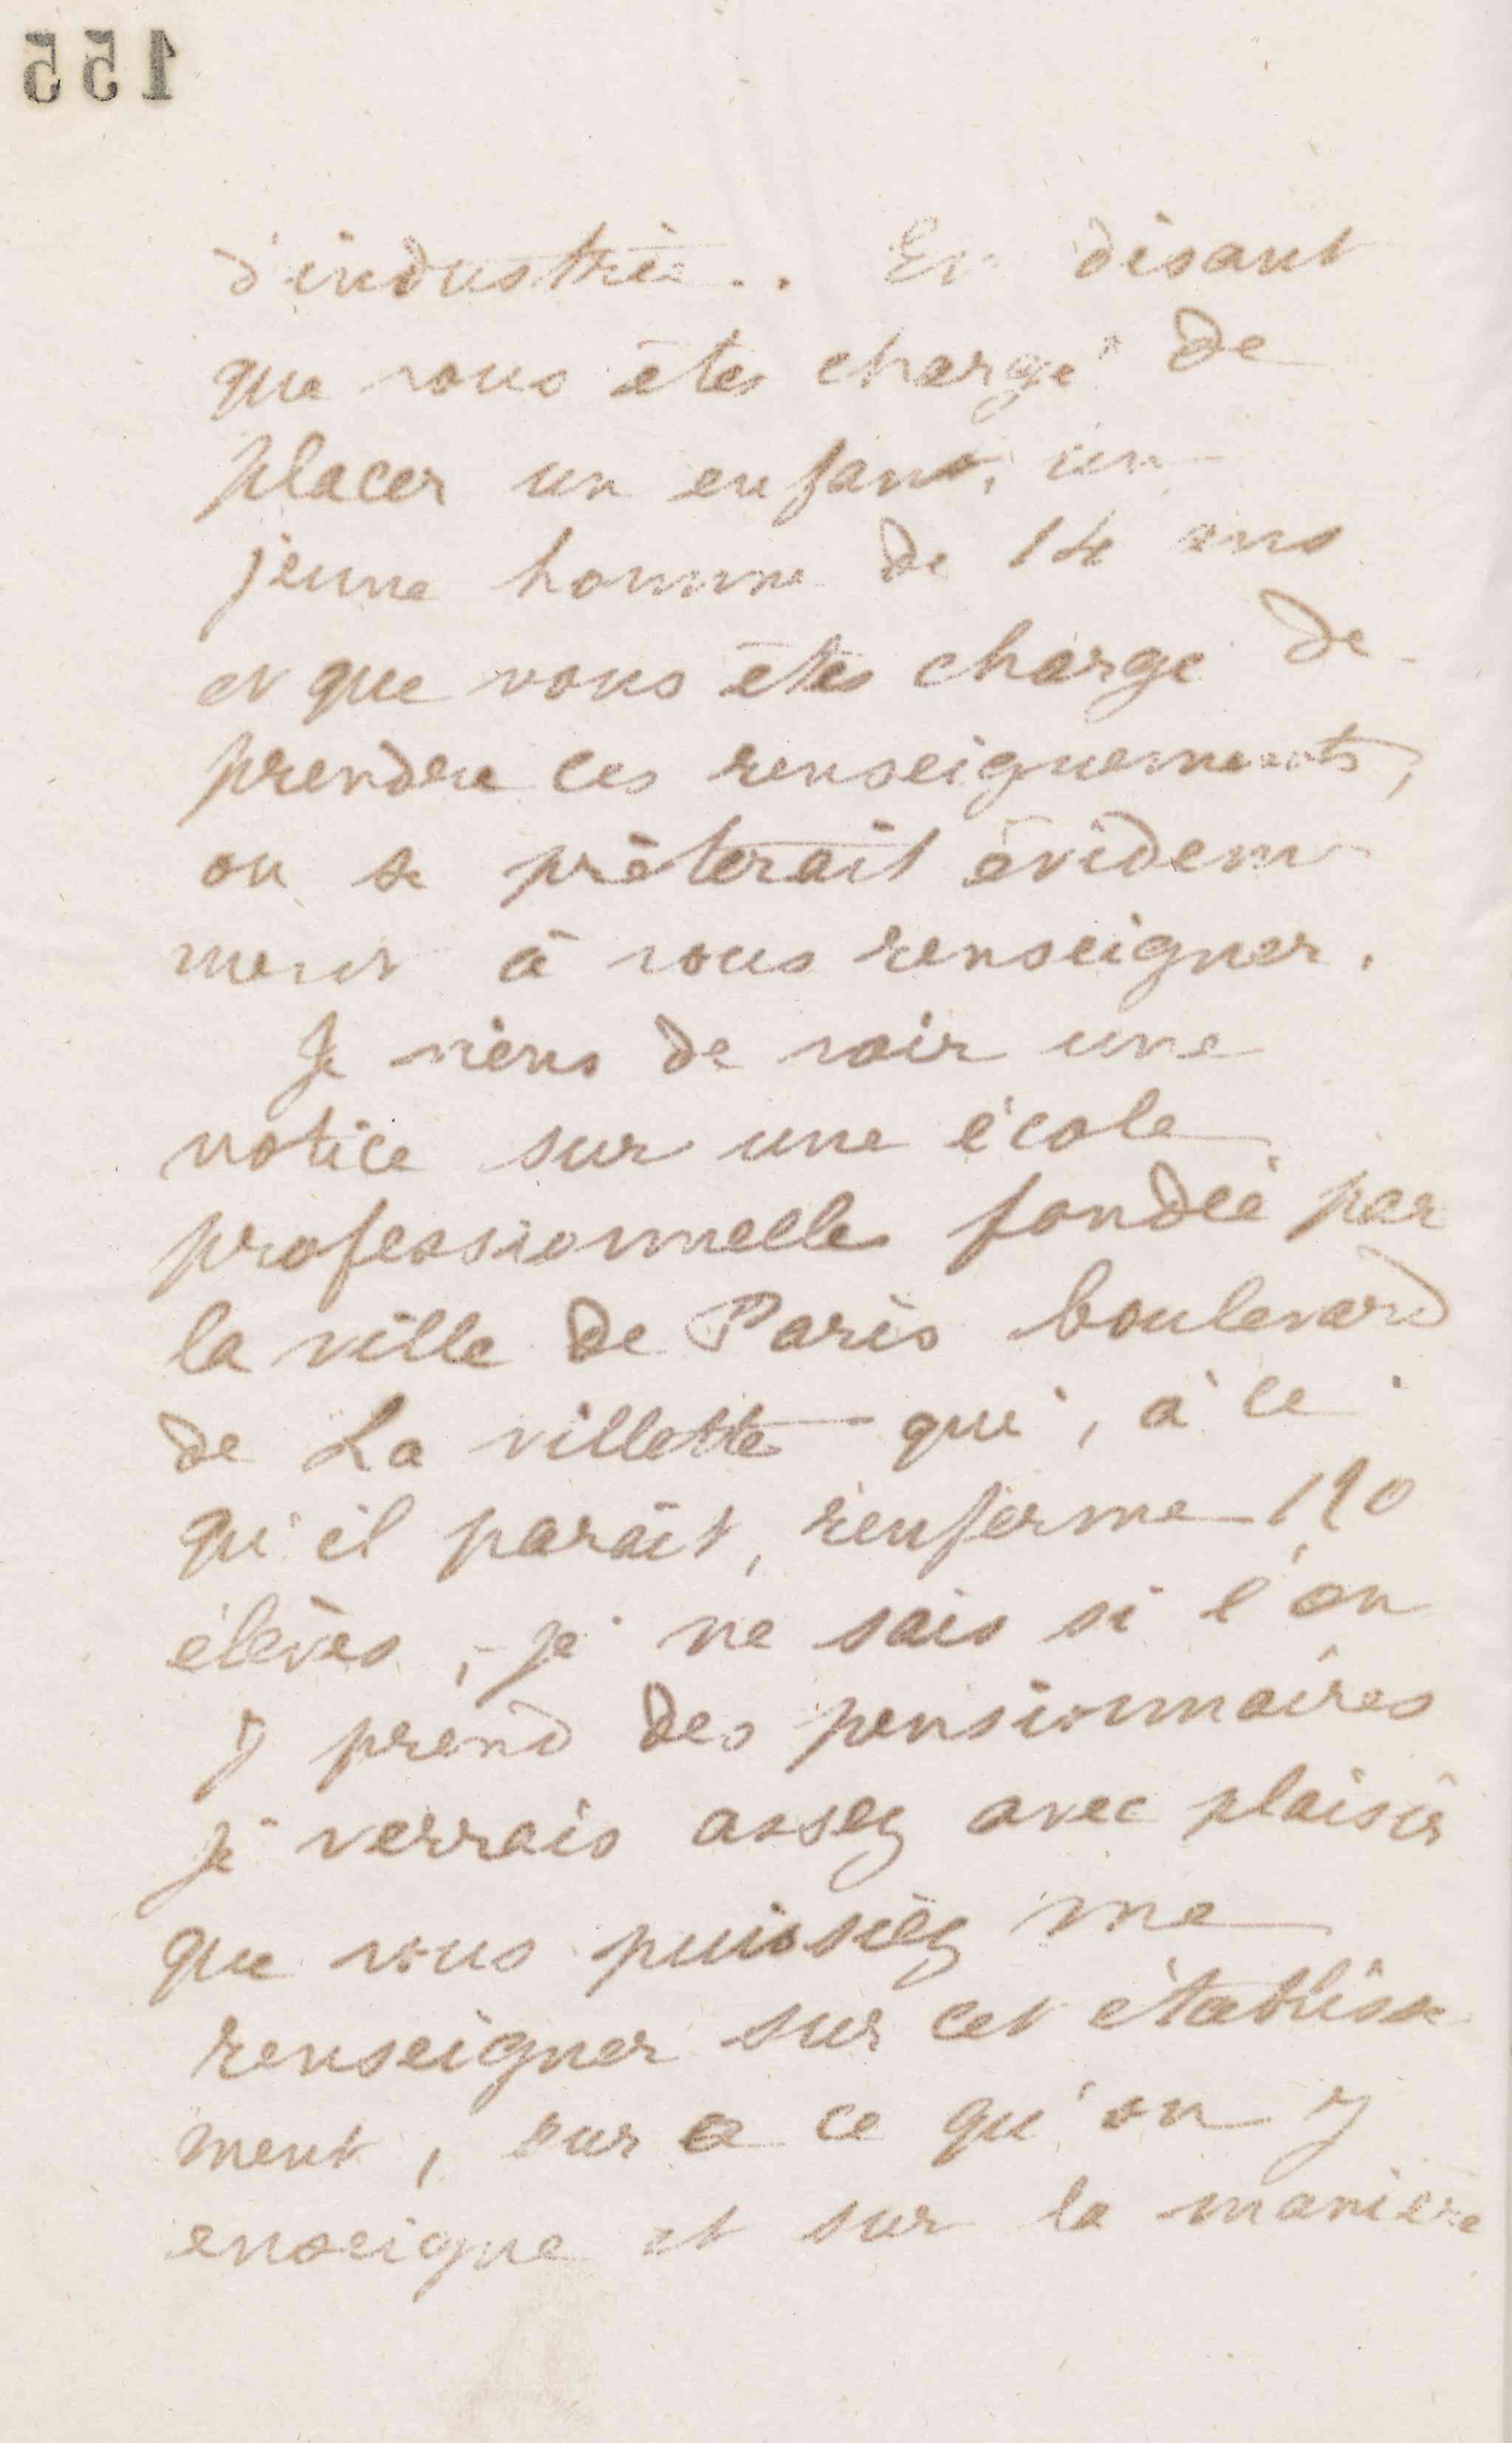 155
d'industrie.. En disant
que vous êtes chargé de
placer un enfant, un
jeune homme de 14 ans
et que vous êtes chargé de
prendre ces renseignements,
on se prêterait évidem
ment à vous renseigner.
Je viens de voir une
notice sur une école
professionnelle fondée par
la ville de Paris boulevard
de La villette qui, à ce
qu'il paraît, renferme 190
élèves, je ne sais si l'on
y prend des pensionnaires
je verrais assez avec plaisir
que vous puissiez me
renseigner sur cet établisse
ment, sur ce qu'on y
enseigne et sur la manière